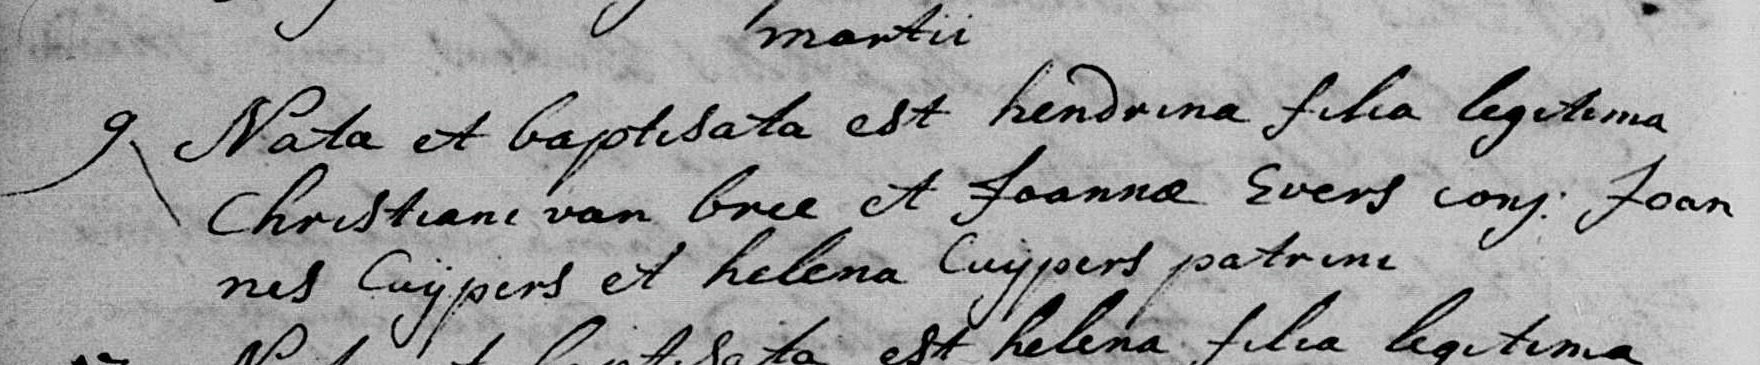 martii
9. Nata et baptisata est hendrina filia legitima
Christiani van bree et Joannæ Evers conj: Joan
nes Cuÿpers et helena Cuÿpers patrini
Nata et baptisata est helena filia legitima